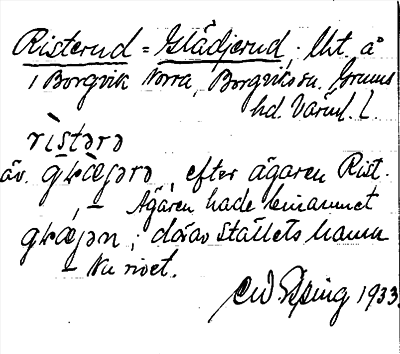 Risterud = Glädjerud, lht. å
i Borgvik Norra, Borgviks sn. Grums
hd. Värml. l.
ristərə
äv. glæjərə, efter ägaren Rist.
, – Ägaren hade binamnet
glæjən ; därav ställets namn
– Nu rivet.
1933.